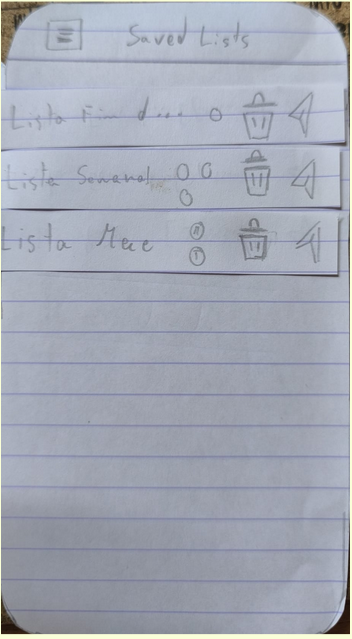 Saved Lists
Lista Fim d...
Lista Semanal
Lista Mae